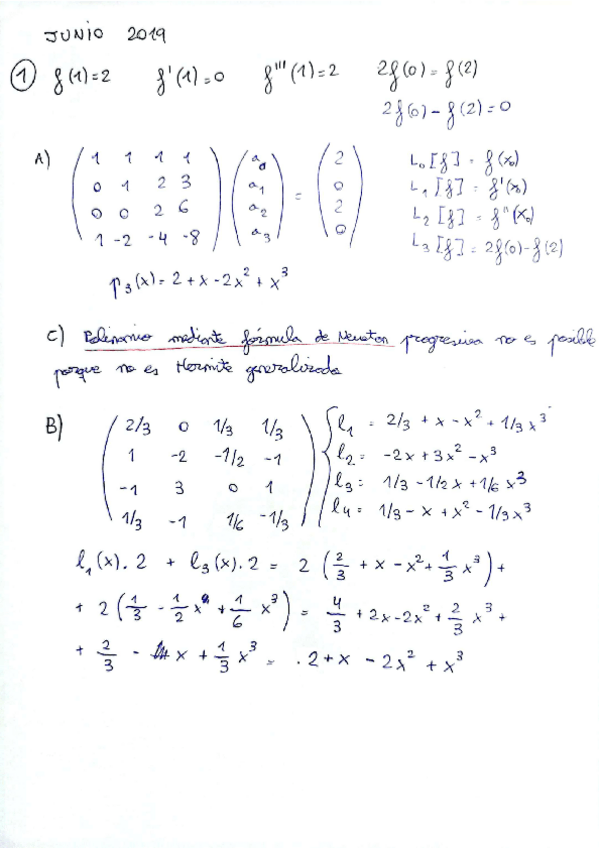 JUNIO 2019
① f(1)=2 f'(1)=0 f'''(1)=2 2f(0)=f(2)
2f(0)-f(2)=0
A) (1 1 1 1) (a0) (2) L0[f] = f(x0)
(0 1 2 3) (a1) = (0) L1[f] = f'(x0)
(0 0 2 6) (a2) (2) L2[f] = f''(x0)
(1 -2 -4 -8) (a3) (0) L3[f] = 2f(0)-f(2)
p3(x) = 2+x-2x²+x³
C) Polinomio mediante fórmula de Newton progresiva no es posible
porque no es Hermite generalizado
B) (2/3 0 1/3 1/3) l1 = 2/3 + x - x² + 1/3x³
(1 -2 -1/2 -1) l2 = -2x+3x²-x³
(-1 3 0 1) l3 = 1/3-1/2x+1/6x³
(1/3 -1 1/6 -1/3) l4 = 1/3-x+x²-1/3x³
l1(x).2 + l3(x).2 = 2 (2/3 + x - x² + 1/3 x³) +
+ 2 (1/3 - 1/2 x + 1/6 x³) = 4/3 + 2x-2x²+ 2/3 x³ +
+ 2/3 - x + 1/3 x³ = .2+x - 2x² + x³